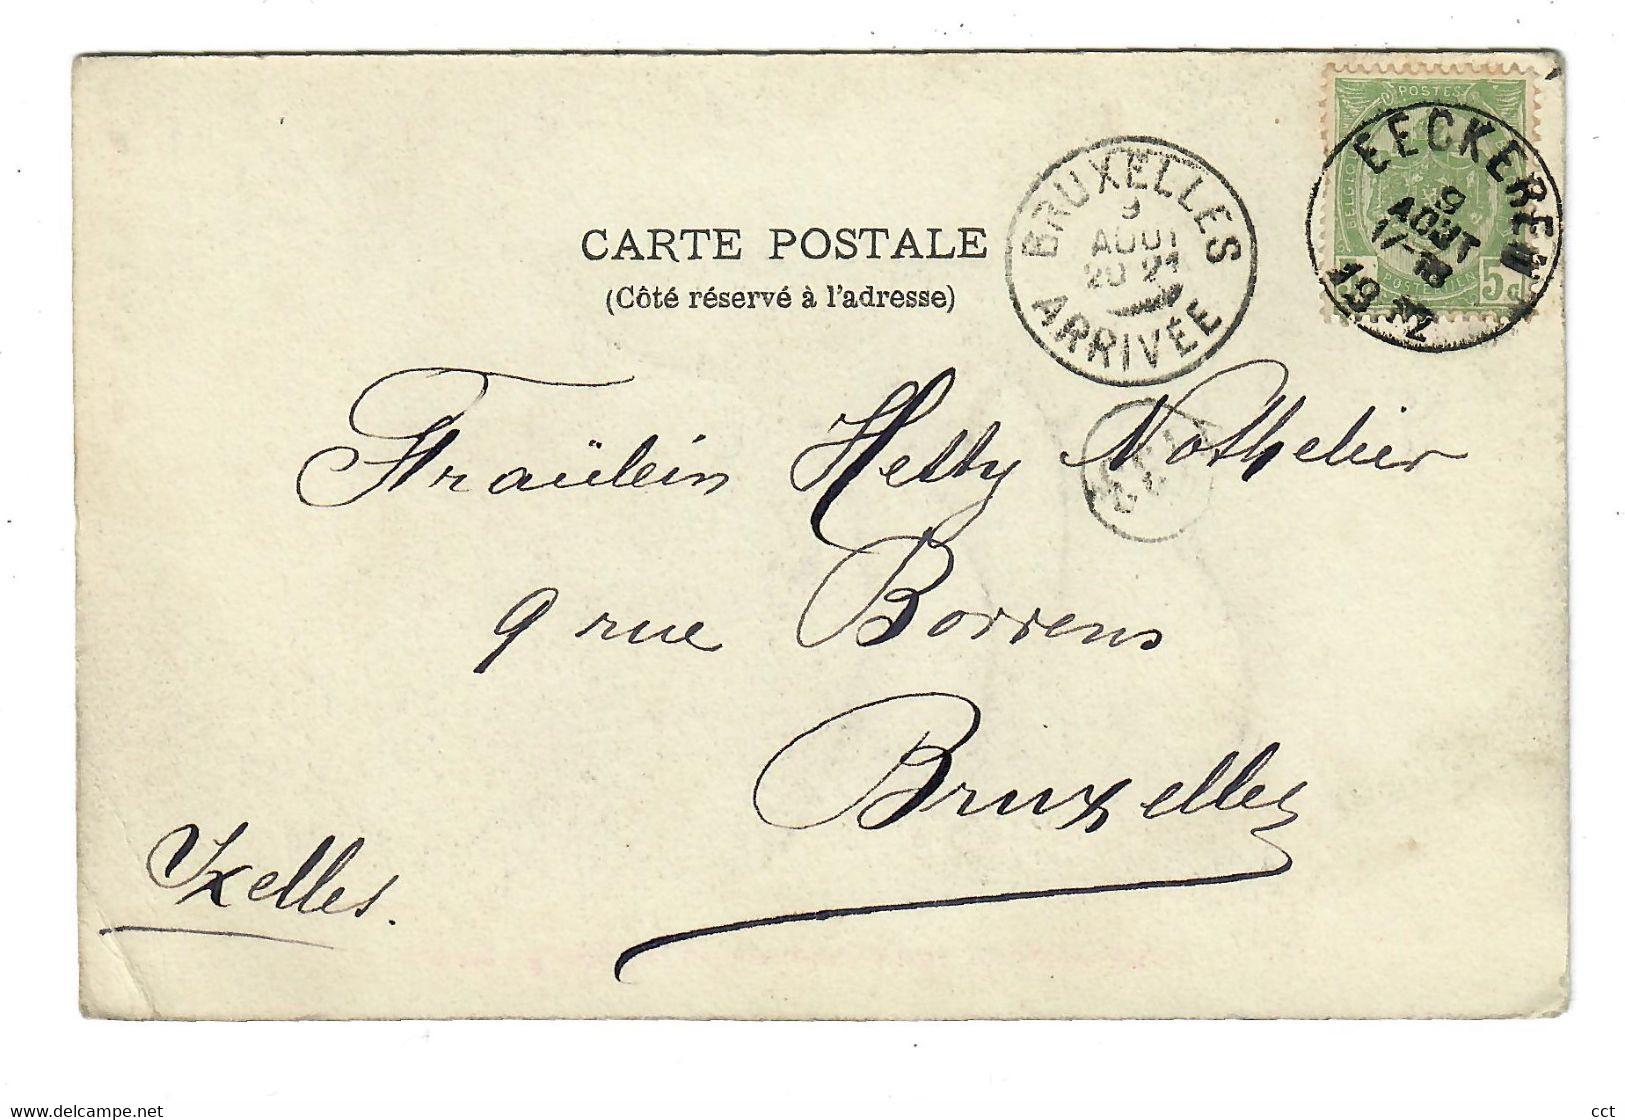 POSTES
BELGIQUE
5c
EECKEREN
9
AOUT
17-18
BRUXELLES
9
AOUT
20 21
ARRIVÉE
CARTE POSTALE
(Côté réservé à l'adresse)
Fraülein Hetty Nothelier
9 rue Borrens
Bruxelles
Ixelles.
www.delcampe.net
cct